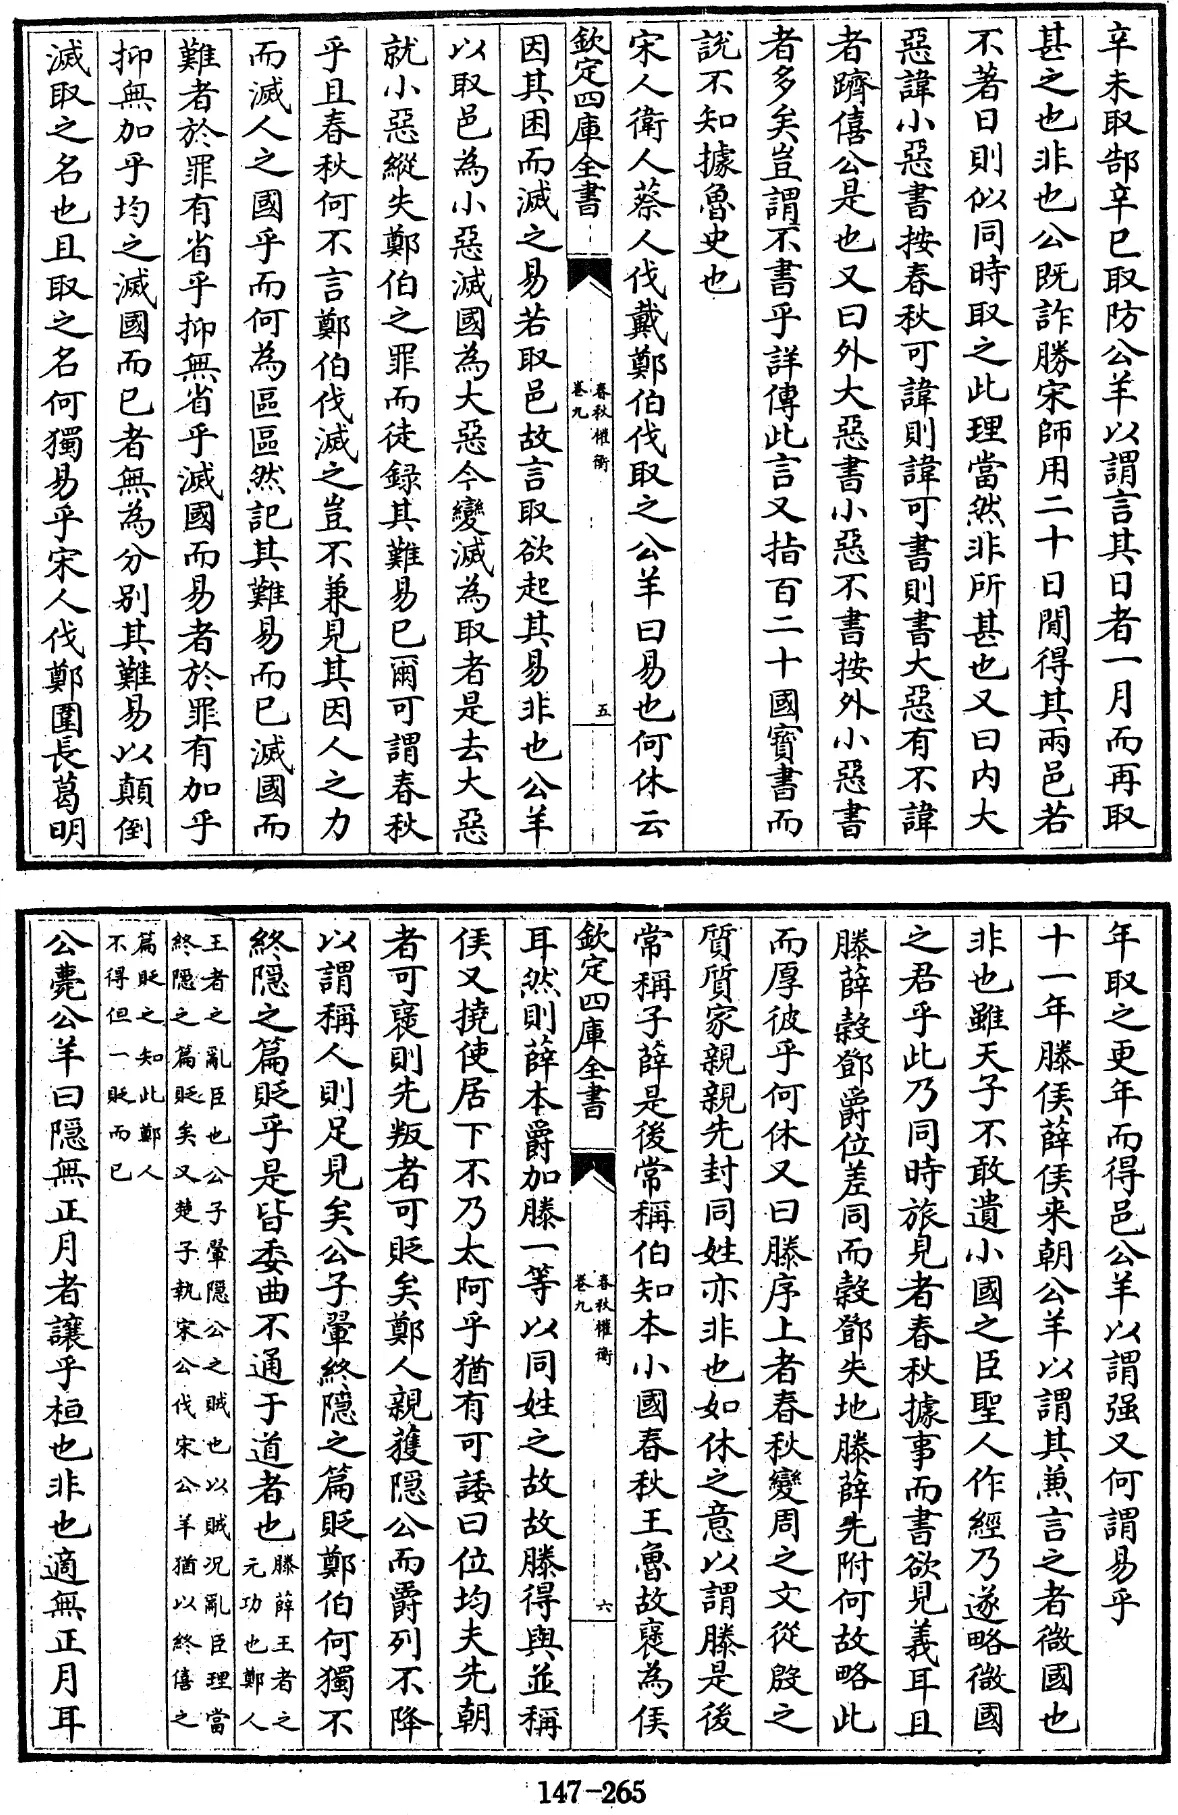 辛未取郜辛巳取防公羊以謂言其日者一月而再取
甚之也非也公既詐勝宋師用二十日閒得其兩邑若
不著日則似同時取之此理當然非所甚也又曰内大
惡諱小惡書按春秋可諱則諱可書則書大惡有不諱
者躋僖公是也又曰外大惡書小惡不書按外小惡書
者多矣豈謂不書乎詳傳此言又指百二十國寳書而
說不知據魯史也
宋人衛人蔡人伐戴鄭伯伐取之公羊曰易也何休云
欽定四庫全書
春秋權衡
卷九
五
因其困而滅之易若取邑故言取欲起其易非也公羊
以取邑為小惡滅國為大惡今變滅為取者是去大惡
就小惡縱失鄭伯之罪而徒録其難易已爾可謂春秋
乎且春秋何不言鄭伯伐滅之豈不兼見其因人之力
而滅人之國乎而何為區區然記其難易而已滅國而
難者於罪有省乎抑無省乎滅國而易者於罪有加乎
抑無加乎均之滅國而已者無為分别其難易以顛倒
滅取之名也且取之名何獨易乎宋人伐鄭圍長葛明
年取之更年而得邑公羊以謂强又何謂易乎
十一年滕侯薛侯来朝公羊以謂其兼言之者微國也
非也雖天子不敢遺小國之臣聖人作經乃遂略微國
之君乎此乃同時旅見者春秋據事而書欲見義耳且
滕薛穀鄧爵位差同而穀鄧失地滕薛先附何故略此
而厚彼乎何休又曰滕序上者春秋變周之文從殷之
質質家親親先封同姓亦非也如休之意以謂滕是後
常稱子薛是後常稱伯知本小國春秋王魯故褒為侯
欽定四庫全書
春秋權衡
卷九
六
耳然則薛本爵加滕一等以同姓之故故滕得與並稱
侯又撓使居下不乃太阿乎猶有可諉曰位均夫先朝
者可褒則先叛者可貶矣鄭人親獲隠公而爵列不降
以謂稱人則足見矣公子翬終隠之篇貶鄭伯何獨不
終隠之篇貶乎是皆委曲不通于道者也滕薛王者之
元功也鄭人
王者之亂臣也公子翬隠公之賊也以賊况亂臣理當
終隠之篇貶矣又楚子執宋公伐宋公羊猶以終僖之
篇貶之知此鄭人
不得但一貶而已
公薨公羊曰隠無正月者讓乎桓也非也適無正月耳
147-265